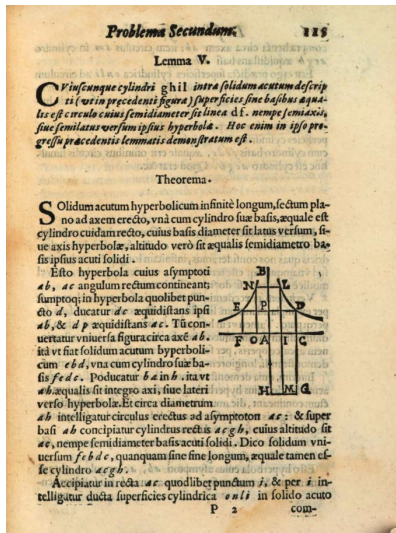 Problema Secundum. 115
Lemma V.
CViuscunque cylindri ghil intra solidum acutum descrip
ti (vt in præcedenti figura) superficies sine basibus æqua-
lis est circulo cuius semidiameter sit linea df. nempe semiaxis,
siue semilatus versum ipsius hyperbolæ. Hoc enim in ipso pro-
gressu præcedentis lemmatis demonstratum est.
Theorema.
SOlidum acutum hyperbolicum infinitè longum, sectum pla-
no ad axem erecto, vnà cum cylindro suæ basis, æquale est
cylindro cuidam recto, cuius basis diameter sit latus versum, si-
ue axis hyperbolæ, altitudo verò sit æqualis semidiametro ba-
sis ipsius acuti solidi.
Esto hyperbola cuius asymptoti
ab, ac angulum rectum contineant;
sumptoq; in hyperbola quolibet pun-
cto d, ducatur dc æquidistans ipsi
ab, & dp æquidistans ac. Tũ con-
uertatur vniuersa figura circa axẽ ab.
ita vt fiat solidum acutum hyperboli-
cum ebd, vna cum cylindro suæ ba-
sis fedc. Poducatur ba in h. ita vt
ah æqualis sit integro axi, siue lateri
verso hyperbolæ. Et circa diametrum
ah intelligatur circulus erectus ad asymptoton ac: & super
basi ah concipiatur cylindrus rectus acgh, cuius altitudo sit
ac, nempe semidiameter basis acuti solidi. Dico solidum vni-
uersum febdc, quanquam sine fine longum, æquale tamen es-
se cylindro acgh.
Accipiatur in recta ac quodlibet punctum i, & per i in-
telligatur ducta superficies cylindrica onli in solido acuto
P 2 com-
B
N L
E P D
F O A I C
H M G